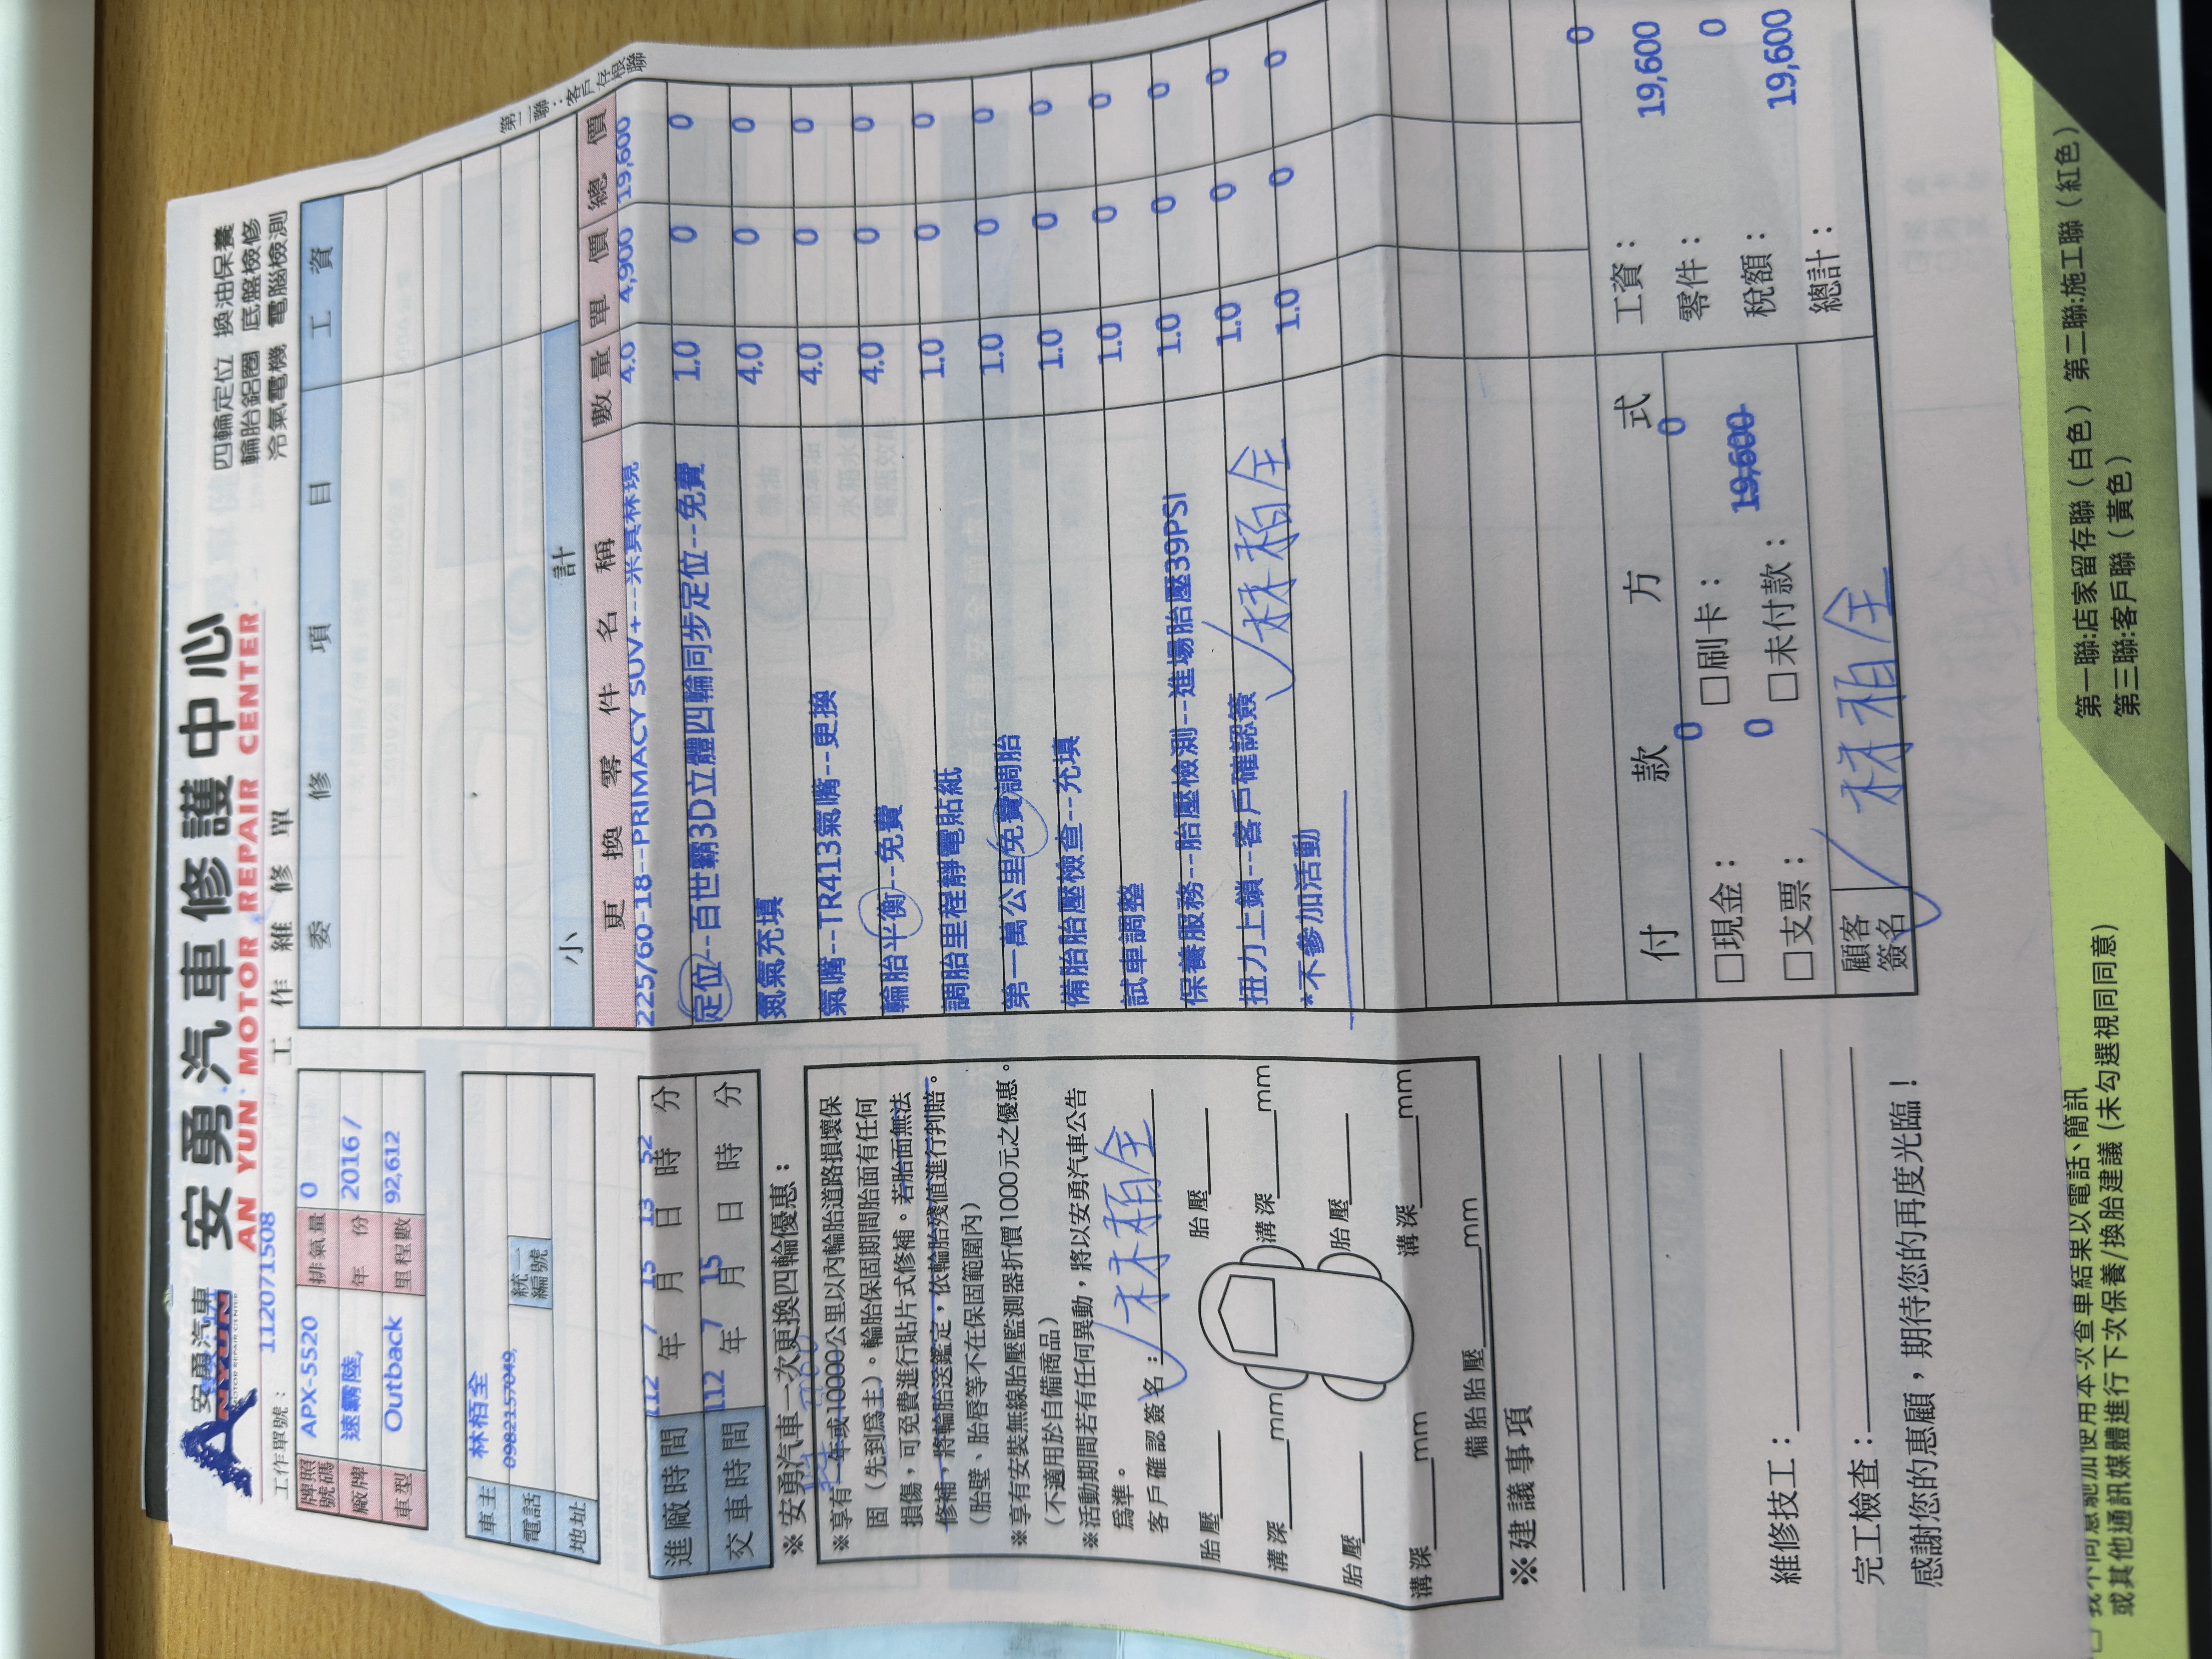 安勇汽車
ANYUN
安勇汽車修護中心
AN YUN MOTOR REPAIR CENTER
四輪定位 換油保養
輪胎鋁圈 底盤檢修
冷氣電機 電腦檢測
工作單號： 112071508
工作維修單
第二聯：客戶存根聯
牌照號碼 APX-5520 排氣量 0
廠牌 速霸陸, 年份 2016 /
車型 Outback 里程數 92,612
車主 林栢全
電話 0982157049, 統一編號
地址
進廠時間 112 年 7 月 15 日 13 時 52 分
交車時間 112 年 7 月 15 日 時 分
※安勇汽車一次更換四輪優惠：
※享有一年或10000公里以內輪胎道路損壞保
固（先到為主）。輪胎保固期間胎面有任何
損傷，可免費進行貼片式修補。若胎面無法
修補，將輪胎送鑑定，依輪胎殘值進行判賠。
（胎壁、胎唇等不在保固範圍內）
※享有安裝無線胎壓監測器折價1000元之優惠。
（不適用於自備商品）
※活動期間若有任何異動，將以安勇汽車公告
為準。
客戶確認簽名： 林栢全
胎壓 胎壓
溝深 mm 溝深 mm
胎壓 胎壓
溝深 mm 溝深 mm
備胎胎壓 mm
※建議事項
維修技工：
完工檢查：
感謝您的惠顧，期待您的再度光臨！
委修項目 工資
小計
更換零件名稱 數量 單價 總價
225/60-18--PRIMACY SUV+---米其林現 4.0 4,900 19,600
定位--百世霸3D立體四輪同步定位--免費 1.0 0 0
氮氣充填 4.0 0 0
氣嘴--TR413氣嘴--更換 4.0 0 0
輪胎平衡--免費 4.0 0 0
調胎里程靜電貼紙 1.0 0 0
第一萬公里免費調胎 1.0 0 0
備胎胎壓檢查--充填 1.0 0 0
試車調整 1.0 0 0
保養服務--胎壓檢測--進場胎壓39PSI 1.0 0 0
扭力上鎖--客戶確認簽 1.0 0 0
林栢全
*不參加活動 1.0 0 0
付款方式
□現金： 0 □刷卡： 0
□支票： 0 □未付款： 19,600
顧客簽名 林栢全
工資： 0
零件： 19,600
稅額： 0
總計： 19,600
第一聯:店家留存聯（白色） 第二聯:施工聯（紅色）
第三聯:客戶聯（黃色）
或其他通訊媒體進行下次保養/換胎建議（未勾選視同同意）